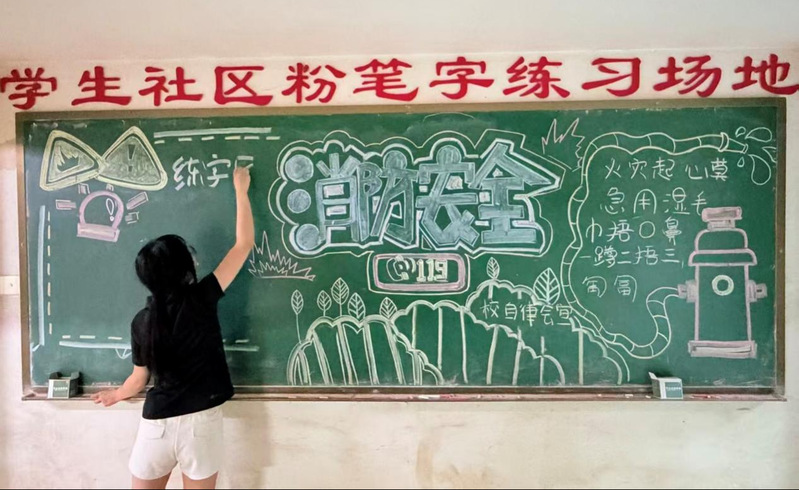 学生社区粉笔字练习场地
练字
消防安全
119
火灾起心莫
急用湿毛
巾捂口鼻
一蹲二捂三
匍匐
校自律会宣